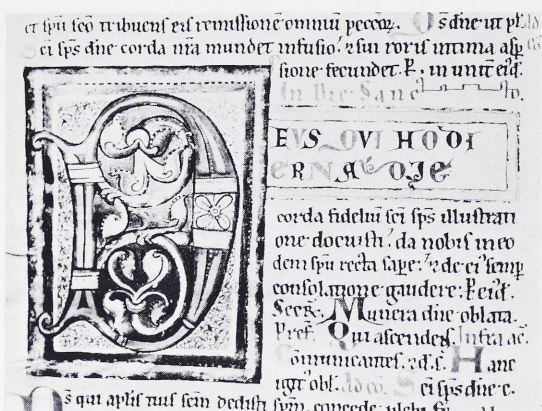 et spū sco tribuens eis remissionē omniū peccat̄. Q s dn̄e ut
ci sp̄s dn̄e corda nr̄a mundet infusio. & sui roris intima
sione fecundet. P. in unit̄ eiᵈ.
In Die Sanc to.
EUS QUI HODI
ERNA DIE
corda fideliū sc̄i sp̄s illustrati
one docuisti. da nobis in eo
dem sp̄u recta sapere. & de ei semp̄
consolatione gaudere. P. eiᵈ.
Secr̄. Munera dn̄e oblata.
Pref. Qui ascendens. Infra ac̄.
Cōmunicantes. Hanc
igit̄ obl. Ad cō. Sci sp̄s dn̄e.
D s qui ap̄lis tuis sc̄m dedisti sp̄m. concede